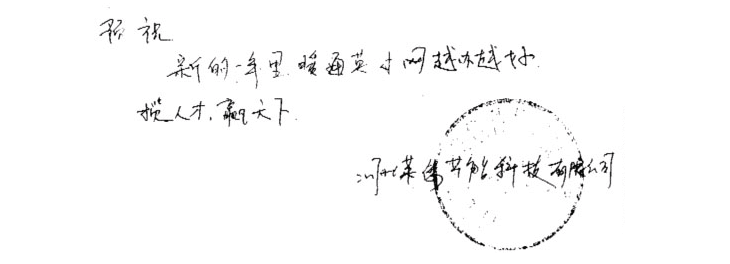 祝
新的一年里暖通英才网越办越好
揽人才,赢天下.
河北莱偉节能科技有限公司